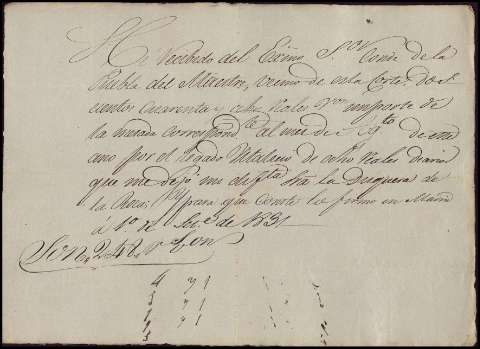 He Recibido del Exmo Sor Conde de la
Puebla del Maestre, vecino de esta Corte, dos
cientos cuarenta y ocho Reales von importe de
la mesada correspondte al mes de de este
año por el legado Vitalicio de ocho Reales diarios
que me dejó mi difta Sra la Duquesa de
la Roca; para que conste lo firmo en Madd
á 1o de de 1831
Son, 248, rs von